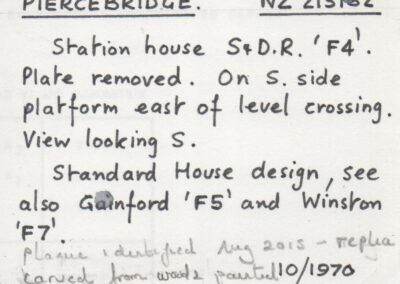 PIERCEBRIDGE. NZ 215162
Station house S&D.R. 'F4'.
Plate removed. On S. side
platform east of level crossing.
View looking S.
Standard House design, see
also Gainford 'F5' and Winston
'F7'.
plaque identified Aug 2015 - replica
carved from wood & painted 10/1970